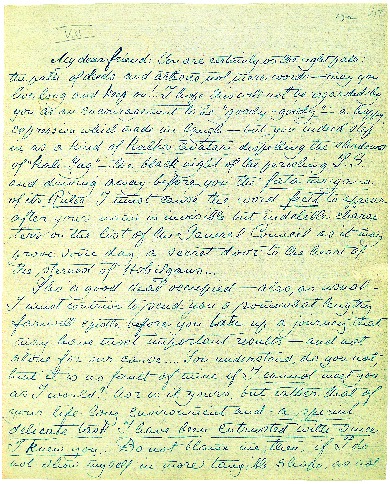 VIII
My dear friend: You are certainly on the right path;
the path of deeds and actions, not mere words — may you
live long and keep on! I hope this will not be regarded by
you as an encouragement to be "goody-goody" — a happy
expression which made me laugh — but you indeed step
in as a kind of Kalki Avatar dispelling the shadows
of "Kali-yug" — the black night of the perishing T.S.
and driving away before you the fata morgana
of its Rules. I must cause the word fecit to appear
after your name in invisible but indelible charac-
ters on the list of the General Council as it may
prove some day a secret door to the heart of
the sternest of
Tho' a good deal occupied — alas, as usual —
I must contrive to send you a somewhat lengthy
farewell epistle before you take up a journey that
may have most important results — and not
alone for our cause... You understand, do you not,
that it is no fault of mine if I cannot meet you
as I would? Nor is it yours, but rather that of
your life-long environment and a special
delicate task I have been entrusted with since
I knew you. Do not blame me then, if I do
not show myself in more tangible shape, as not